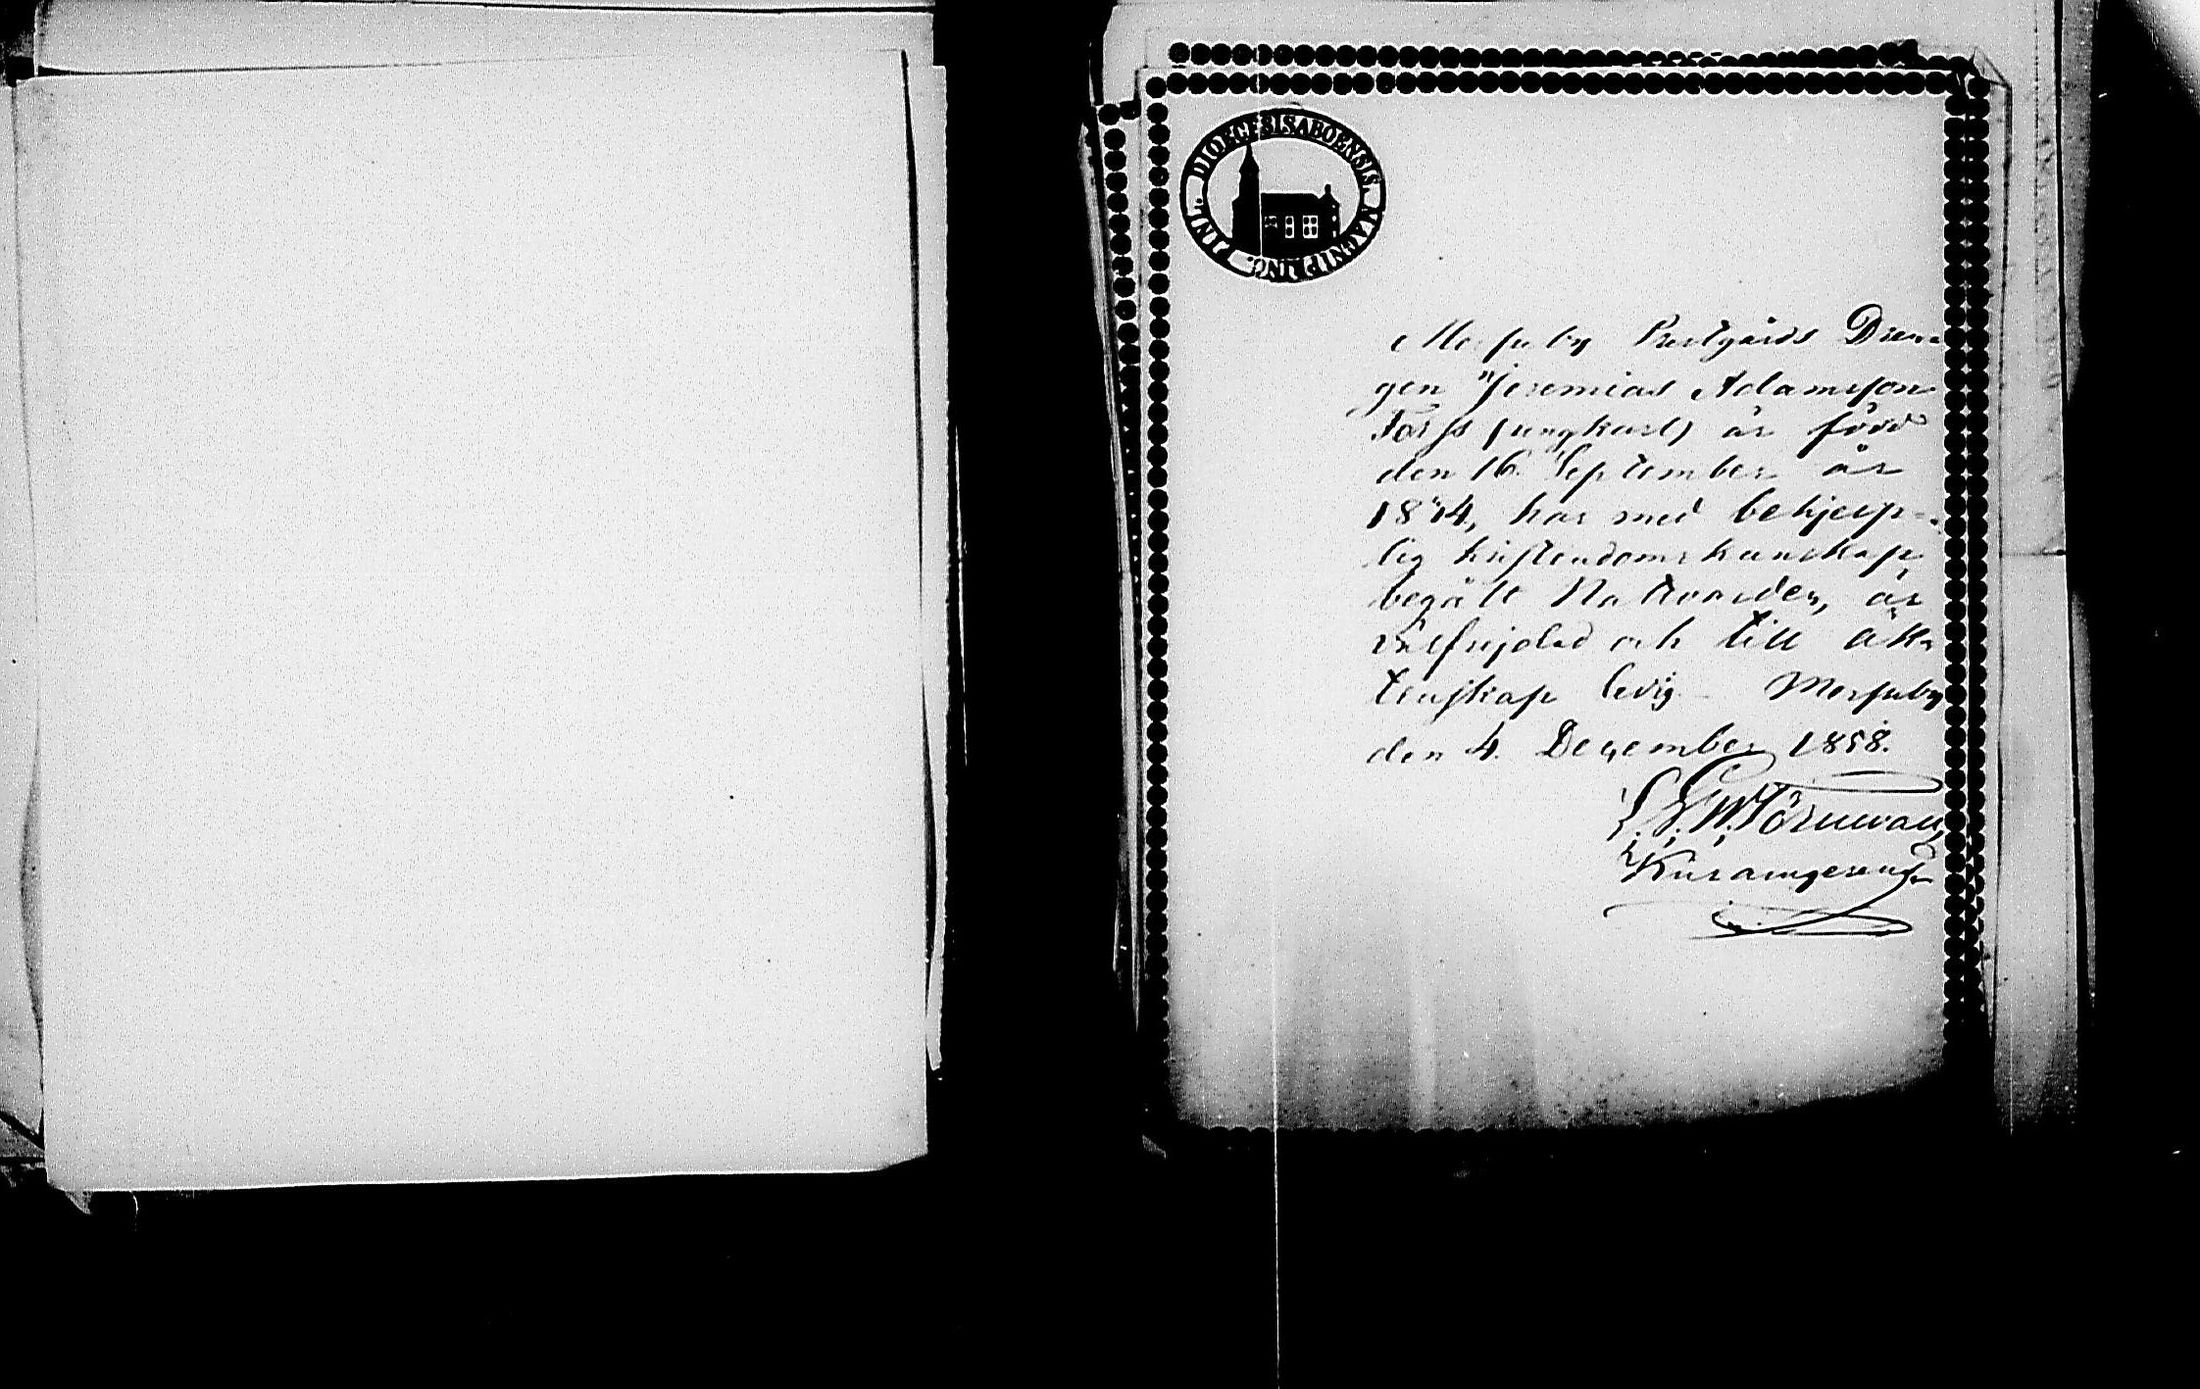 DIOECESIS ABOENSIS. MAGNI PRINC. FINL.
Messuby Prestgårds Dren-
gen Jeremias Adamsson
Fors (ungkarl) är född
den 16 September år
1814, har med behjelp-
lig kristendomskunskap
begått Nattvarden, är
välfrejdad och till äkta
tenskap ledig. Messuby
den 4. December 1858.
Törnwall